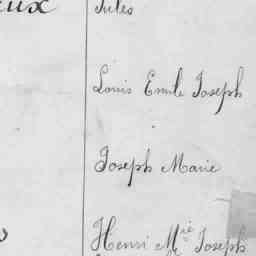 Jules
Louis Emile Joseph
Joseph Marie
Henri Mie Joseph